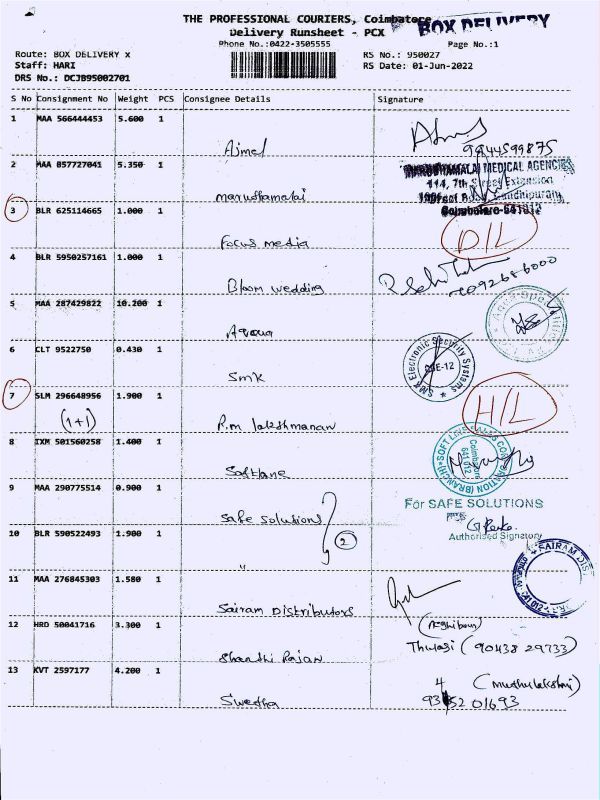 THE PROFESSIONAL COURIERS, Coimbatore
BOX DELIVERY
Delivery Runsheet - PCX
Phone No.:0422-3505555
Page No.:1
Route: BOX DELIVERY x
RS No.: 950027
Staff: HARI
RS Date: 01-Jun-2022
DRS No.: DCJB95002701
S No Consignment No Weight PCS Consignee Details Signature
1 MAA 566444453 5.600 1
Ajmel
9944599875
2 MAA 857727041 5.350 1
MEDICAL AGENCIES
114, 7th Street Extension
marudhamalai
100feet Road Gandhipuram,
Coimbatore-641012
3 BLR 625114665 1.000 1
D/L
Focus media
4 BLR 5950257161 1.000 1
Bloom wedding
7092686000
5 MAA 287429822 10.200 1
Aqoua
6 CLT 9522750 0.430 1
SMK Electronic Security Systems
CBE-12
SMK
7 SLM 296648956 1.900 1
H/L
(1+1)
R.m lakshmanan
8 IXM 501560258 1.400 1
Coimbatore
641 012
Softlane
9 MAA 290775514 0.900 1
For SAFE SOLUTIONS
Safe solutions
2
10 BLR 590522493 1.900 1
Authorised Signatory
"
11 MAA 276845303 1.580 1
SAIRAM DIS
Sairam Distributors
12 HRD 50041716 3.300 1
(Neghibour)
Thulasi (90438 29733)
Shanthi Rajan
13 KVT 2597177 4.200 1
4 (muthulakshmi)
Swedha
93 52 01693